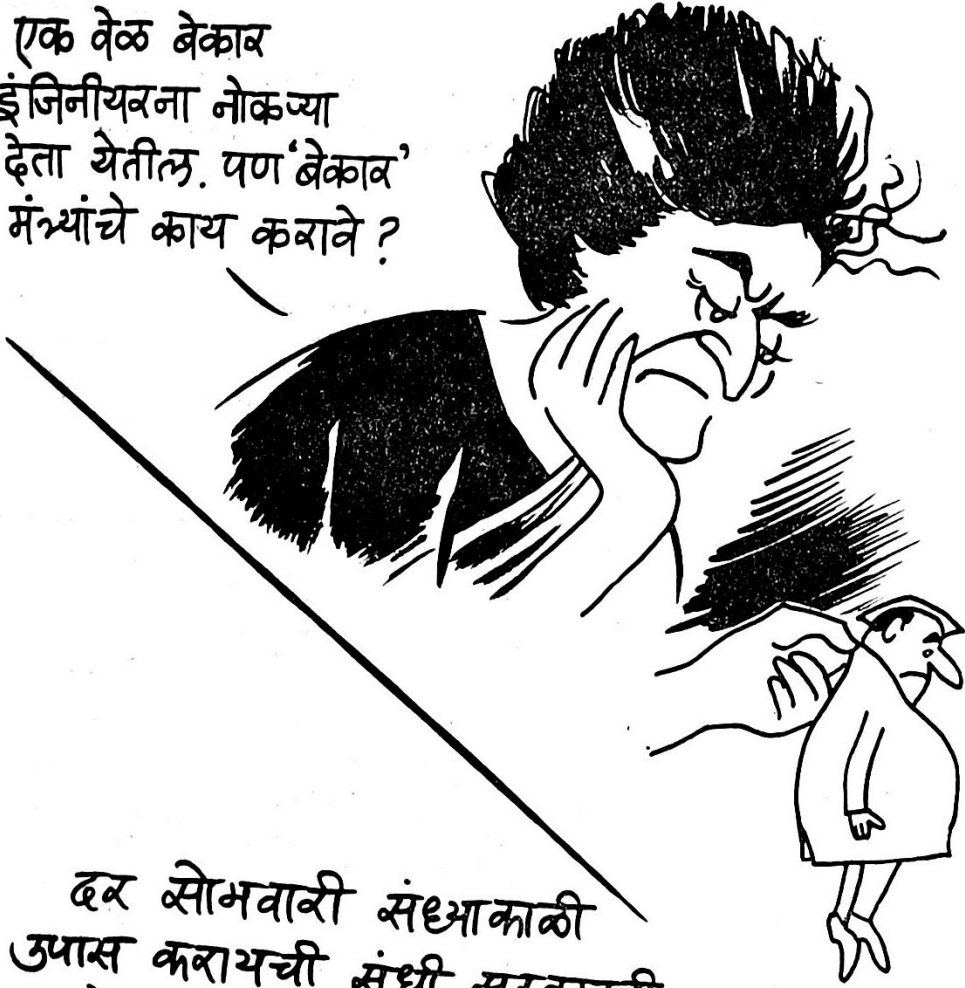 एक वेळ बेकार
इंजिनीयरना नोकऱ्या
देता येतील. पण 'बेकार'
मंत्र्यांचे काय करावे ?
दर सोमवारी संध्याकाळी
उपास करायची संधी